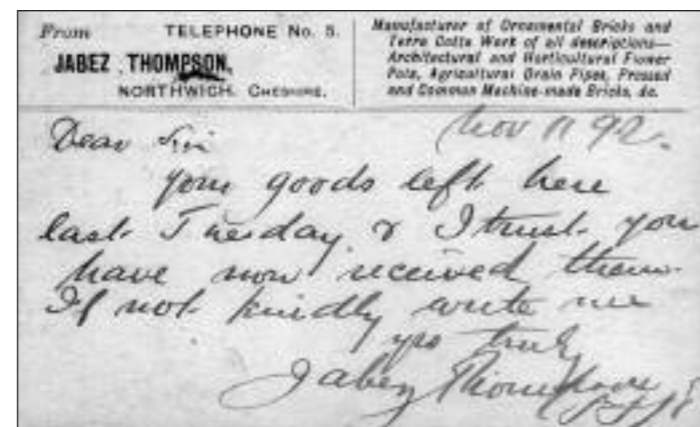 From TELEPHONE No. 5.
JABEZ THOMPSON,
NORTHWICH. CHESHIRE.
Manufacturer of Ornamental Bricks and
Terra Cotta Work of all descriptions—
Architectural and Horticultural Flower
Pots, Agricultural Drain Pipes, Pressed
and Common Machine-made Bricks, &c.
Nov 11 92.
Dear Sir
Your goods left here
last Tuesday & I trust you
have now received them
If not kindly write me
yrs truly
Jabez Thompson